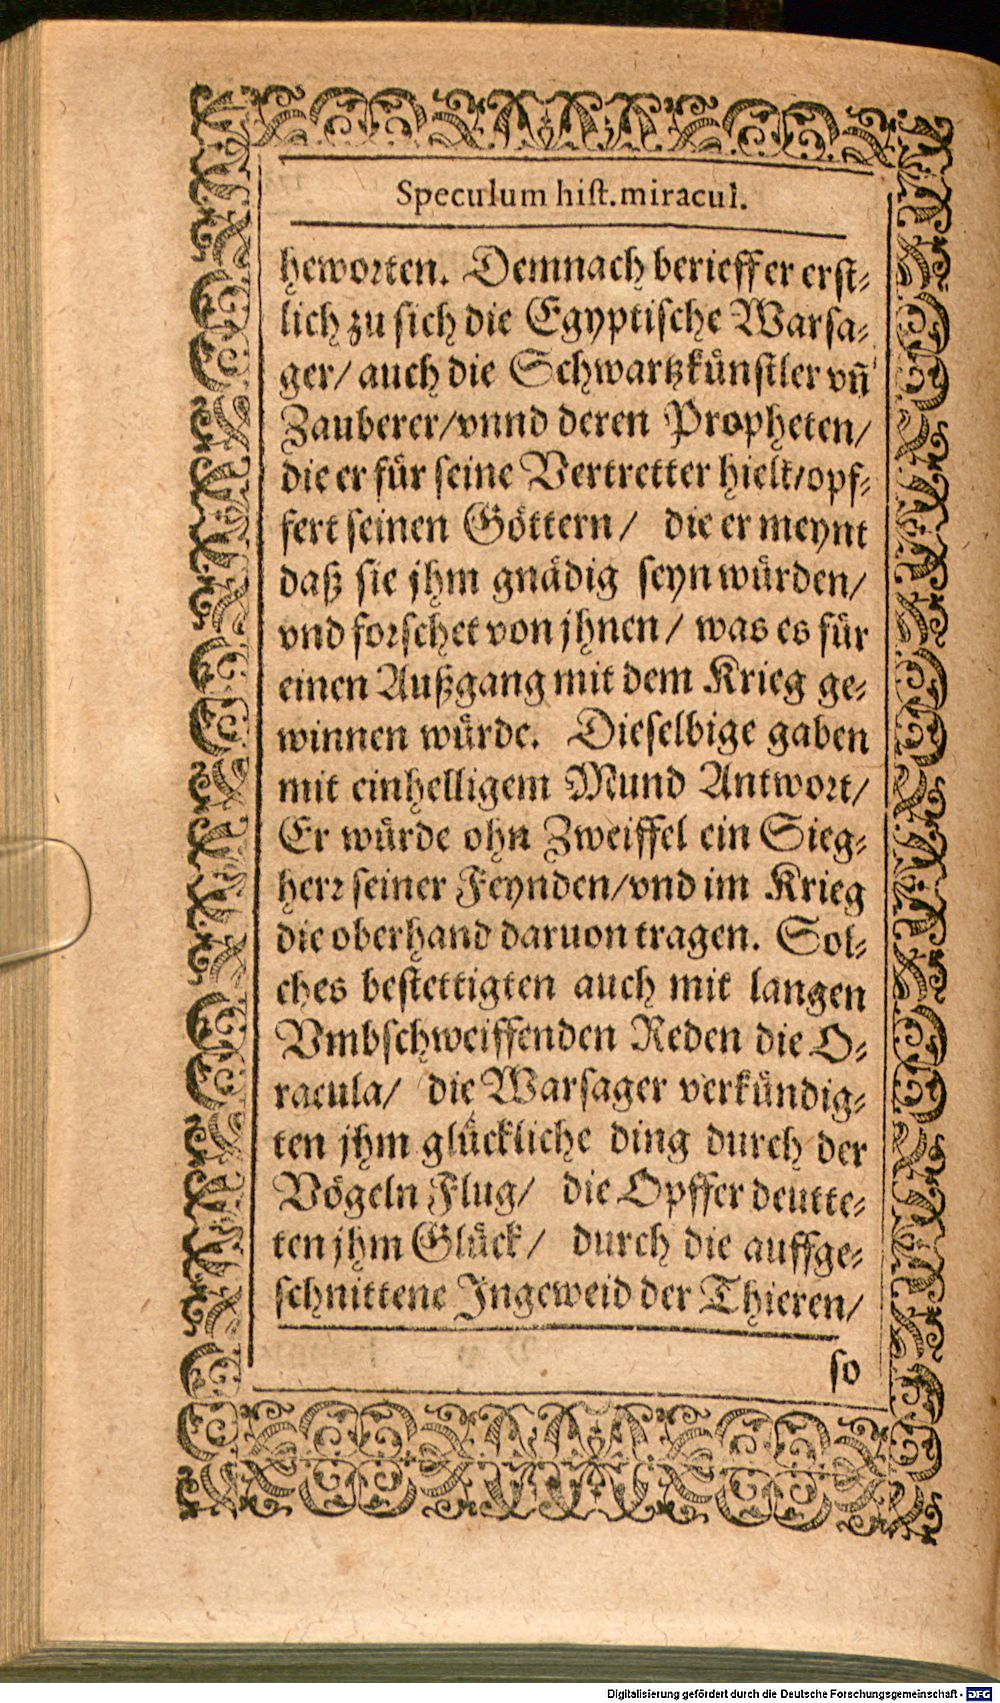 Speculum hist. miracul.
heworten. Demnach berieff er erst-
lich zu sich die Egyptische Warsa-
ger/ auch die Schwartzkünstler vñ
Zauberer/vnnd deren Propheten/
die er für seine Vertretter hielt/opf-
fert seinen Göttern/ die er meynt
daß sie jhm gnädig seyn würden/
vnd forschet von jhnen/ was es für
einen Außgang mit dem Krieg ge-
winnen würde. Dieselbige gaben
mit einhelligem Mund Antwort/
Er würde ohn Zweiffel ein Sieg-
herr seiner Feynden/vnd im Krieg
die oberhand daruon tragen. Sol-
ches bestettigten auch mit langen
Vmbschweiffenden Reden die O-
racula/ die Warsager verkündig-
ten jhm glückliche ding durch der
Vögeln Flug/ die Opffer deutte-
ten jhm Glück/ durch die auffge-
schnittene Ingeweid der Thieren/
so
Digitalisierung gefördert durch die Deutsche Forschungsgemeinschaft - DFG